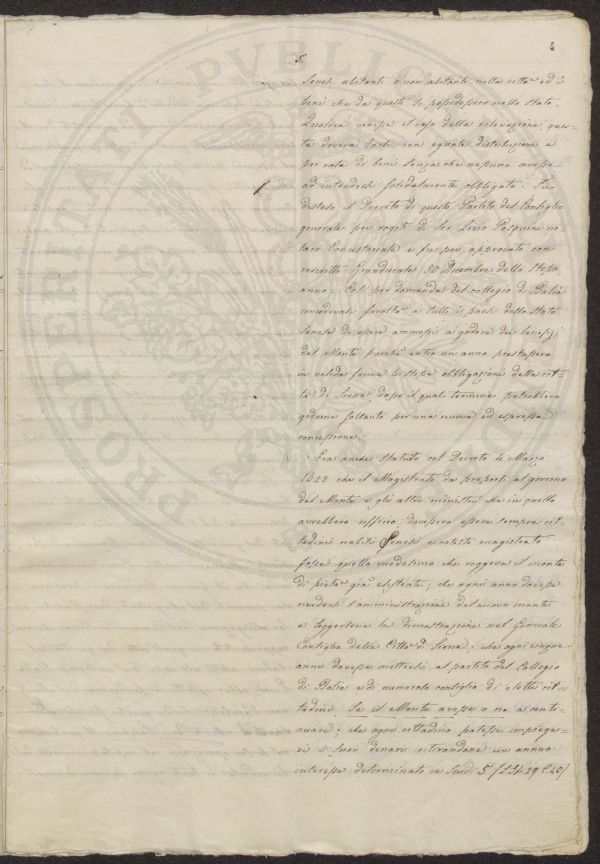 5.
Senesi abitanti o non abitanti nella città ed i
beni che da questi si possedessero nello Stato.
Qualora venisse il caso della rilevazione, ques=
ta doveva farsi con eguale distribuzione e
per rata di beni senza che nessuno avesse
ad intendersi solidalmente obbligato. Fu
disteso il Decreto di questo Partito del Consiglio
generale per rogiti di Ser Livio Pasquini no=
taro Concistoriale e fu poi approvato con
rescritto Granducale 30 Dicembre dello stesso
anno. Così per domanda del collegio di Balia
concedevasi facoltà a tutti i paesi dello Stato
Senese di essere ammessi a godere dei benefizj
del Monte purchè entro un anno prestassero
in valida forma la stessa obbligazione della cit=
tà di Siena, dopo il qual termine potrebbero
goderne soltanto per una nuova ed espressa
concessione.
Era anche statuito col Decreto 4 Marzo
1622 che il Magistrato da preporsi al governo
del Monte e gli altri ministri che in quello
avrebbero ufficio dovessero essere sempre cit=
tadini nobili Senesi e cotesto magistrato
fosse quello medesimo che reggeva il monte
di pietà già esistente; che ogni anno dovesse
rivedersi l'amministrazione del nuovo monte
e leggersene la dimostrazione nel Generale
Consiglio della Città di Siena; che ogni cinque
anni dovesse mettersi al partito del Collegio
di Balia e di numerato consiglio di eletti cit=
tadini Se il Monte avesse o no a conti=
nuare; che ogni cittadino potesse impiegar=
vi i suoi denari ritirandone un annuo
interesse determinato in Scudi 5
PROSPERITATI PVBLI